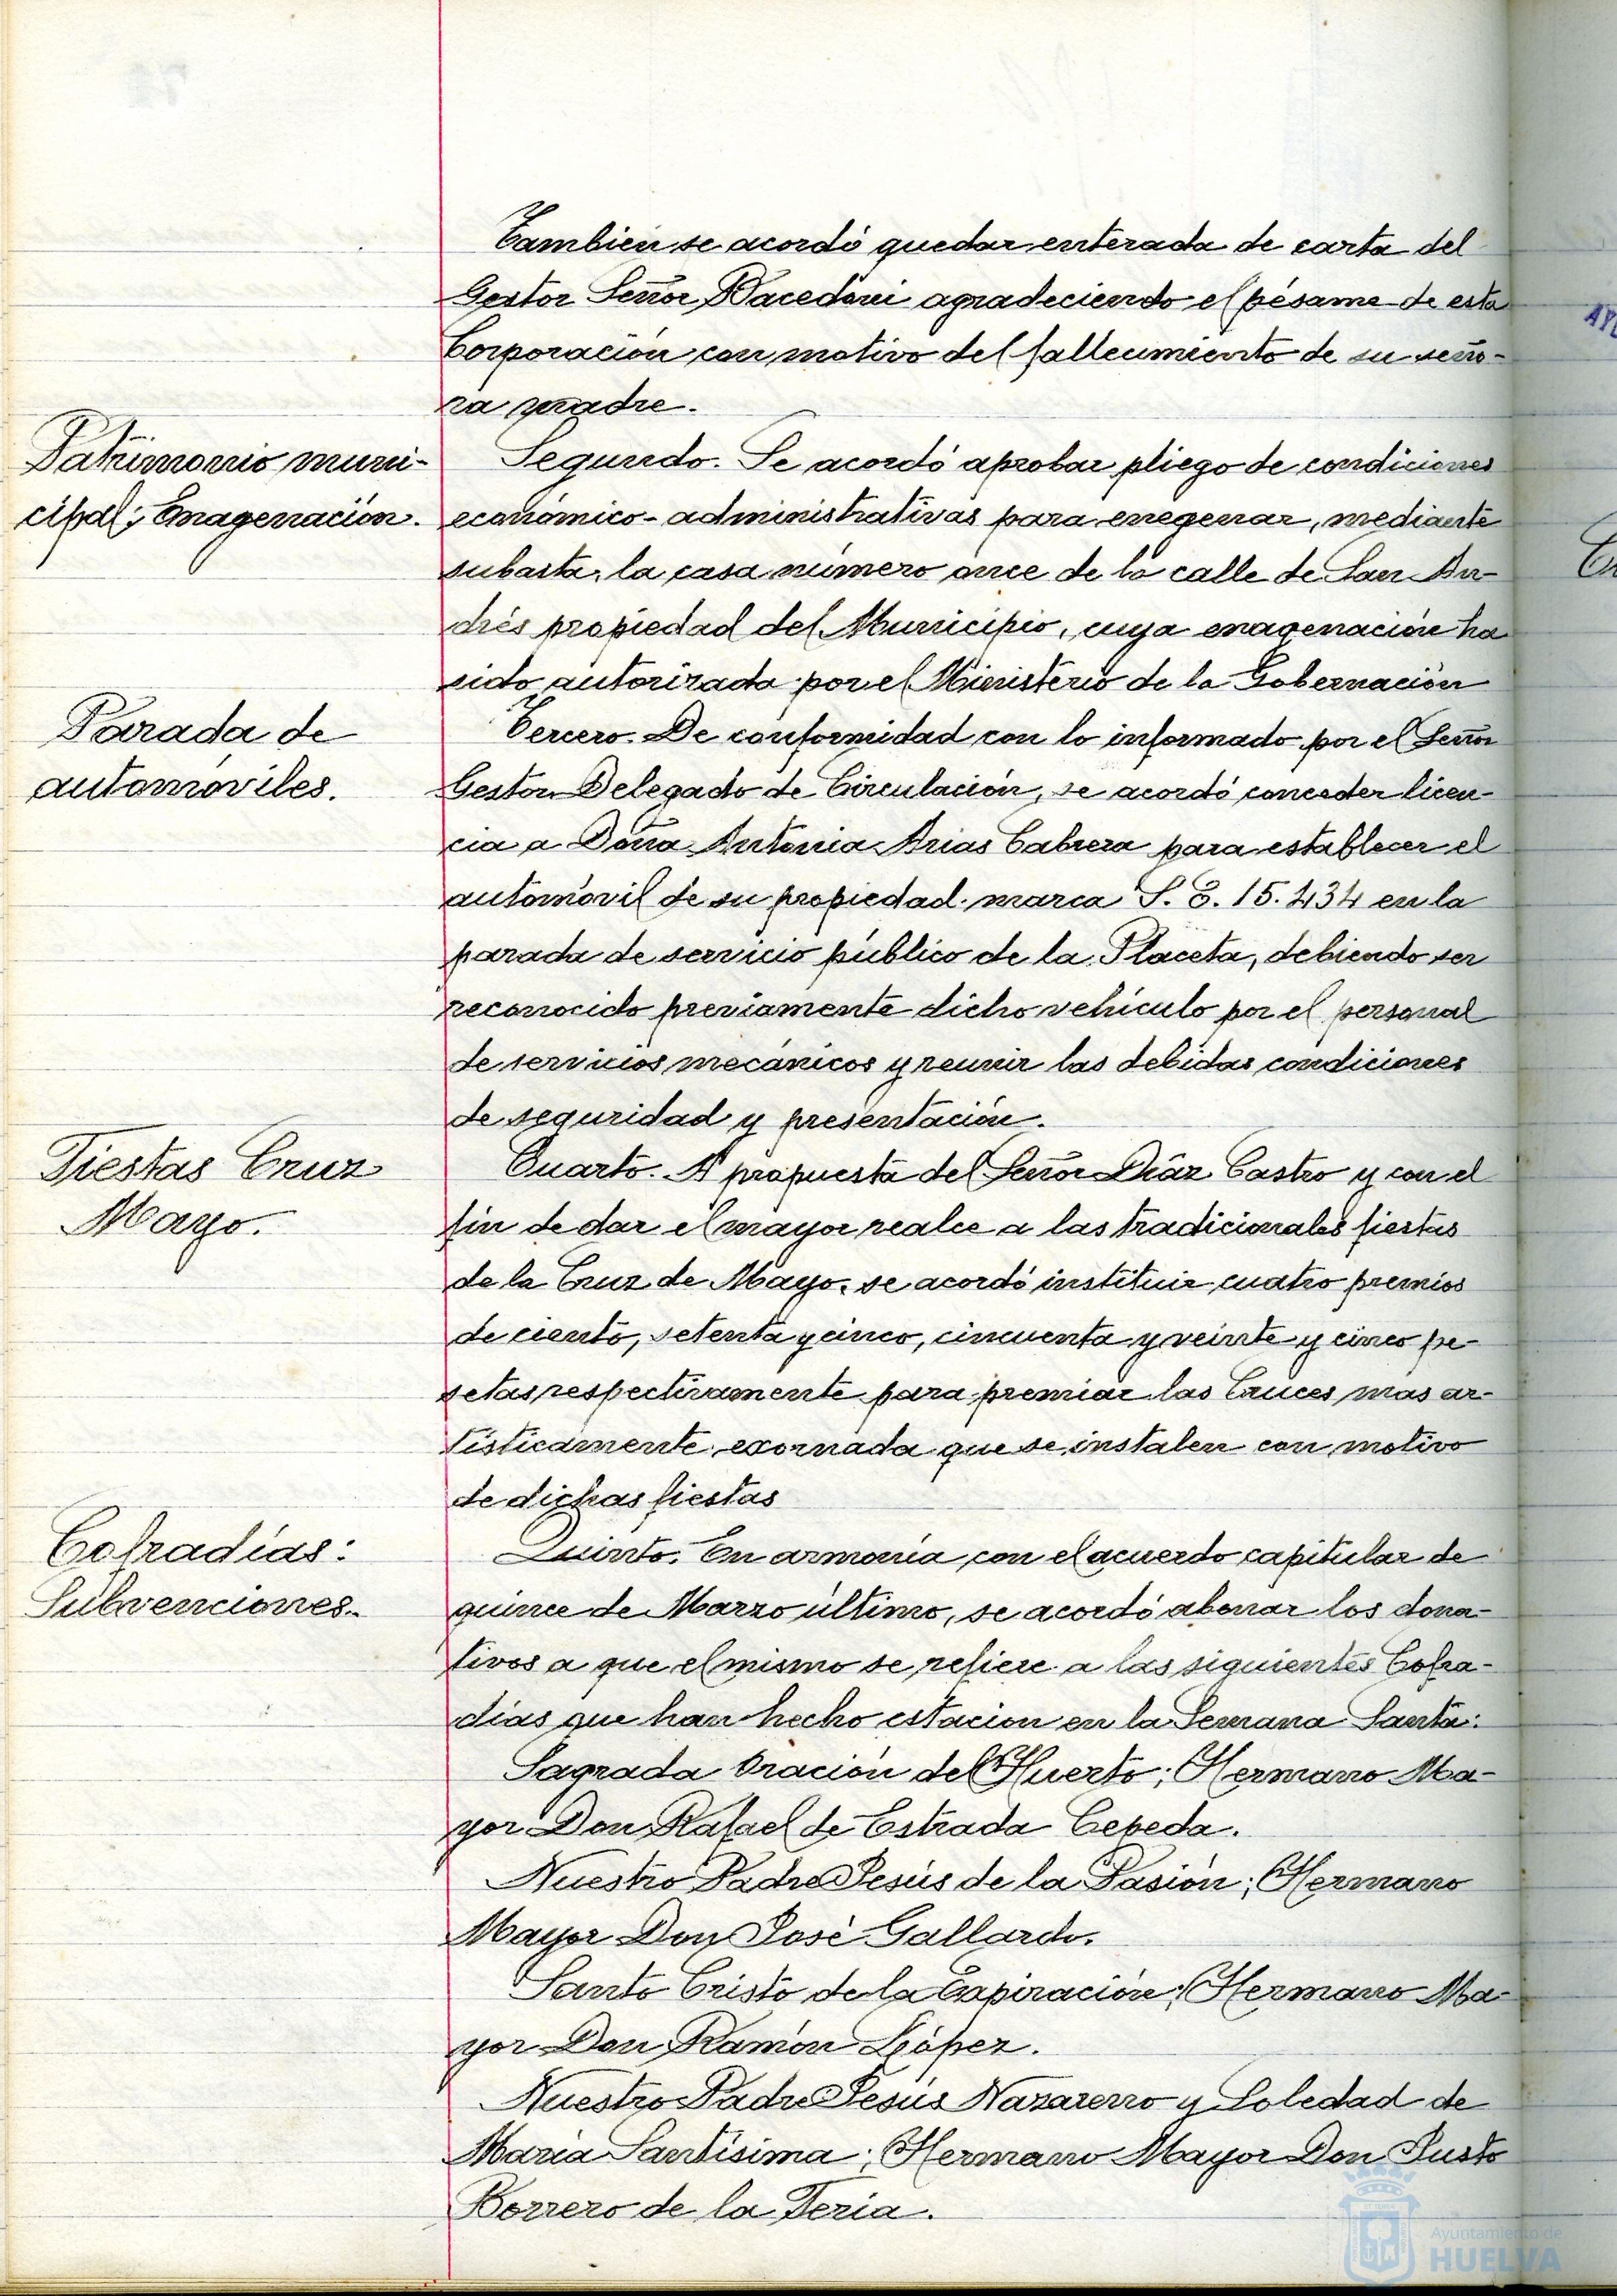 Tambien se acordó quedar enterada de carta del
Gestor Señor Macedoni agradeciendo el pésame de esta
Corporación con motivo del fallecimiento de su seño-
ra madre.
Patrimonio muni-
cipal; Enagenación.
Segundo. Se acordó aprobar pliego de condiciones
económico-administrativas para enegenar, mediante
subasta, la casa número once de la calle de San An-
drés propiedad del Municipio, cuya enagenación ha
sido autorizada por el Ministerio de la Gobernación
Parada de
automóviles.
Tercero. De conformidad con lo informado por el Señor
Gestor Delegado de Circulación, se acordó conceder licen-
cia a Doña Antonia Arias Cabrera para establecer el
automóvil de su propiedad marca S. E. 15.434 en la
parada de servicio público de la Placeta, debiendo ser
reconocido previamente dicho vehículo por el personal
de servicios mecánicos y reunir las debidas condiciones
de seguridad y presentación.
Fiestas Cruz
Mayo.
Cuarto. A propuesta del Señor Díaz Castro y con el
fin de dar el mayor realce a las tradicionales fiestas
de la Cruz de Mayo, se acordó instituir cuatro premios
de ciento, setenta y cinco, cincuenta y veinte y cinco pe-
setas respectivamente para premiar las Cruces mas ar-
tisticamente exornada que se instalen con motivo
de dichas fiestas
Cofradías:
Subvenciones.
Quinto. En armonía con el acuerdo capitular de
quince de Marzo último, se acordó abonar los dona-
tivos a que el mismo se refiere a las siguientes Cofra-
dias que han hecho estación en la Semana Santa:
Sagrada Oración del Huerto; Hermano Ma-
yor Don Rafael de Estrada Cepeda.
Nuestro Padre Jesús de la Pasión; Hermano
Mayor Don José Gallardo.
Santo Cristo de la Expiración; Hermano Ma-
yor Don Ramón López.
Nuestro Padre Jesús Nazareno y Soledad de
María Santísima; Hermano Mayor Don Justo
Borrero de la Feria.
Ayuntamiento de
HUELVA